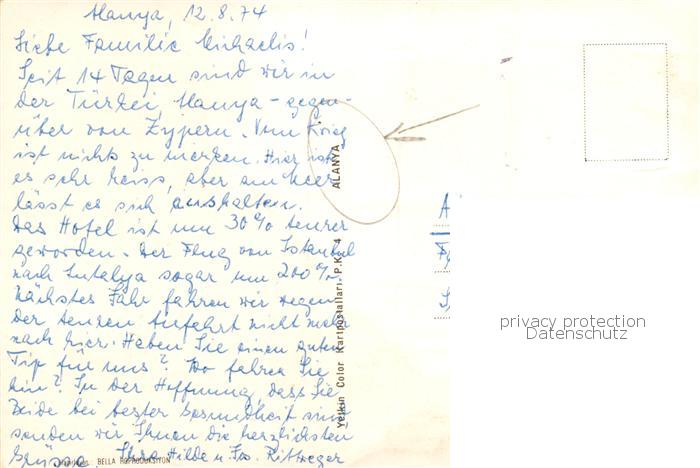 Alanya, 12.8.74
Liebe Familie Michaelis!
Seit 14 Tagen sind wir in
der Türkei, Alanya - gegen-
über von Zypern. Vom Krieg
ist nichts zu merken. Hier ist
es sehr heiss, aber am Meer
lässt es sich aushalten.
Das Hotel ist um 30% teurer
geworden. Der Flug von Istanbul
nach Antalya sogar um 200%.
Nächstes Jahr fahren wir wegen
der teuren Anfahrt nicht mehr
nach hier. Haben Sie einen guten
Tip für uns? Wo fahren Sie
hin? In der Hoffnung, dass Sie
Beide bei bester Gesundheit sind
senden wir Ihnen die herzlichsten
Grüsse. Ihre Hilde u.
BELLA REPRODUKSİYON
Yetkin Color Kartpostalları P.K. 4 ALANYA
A
privacy protection
Datenschutz